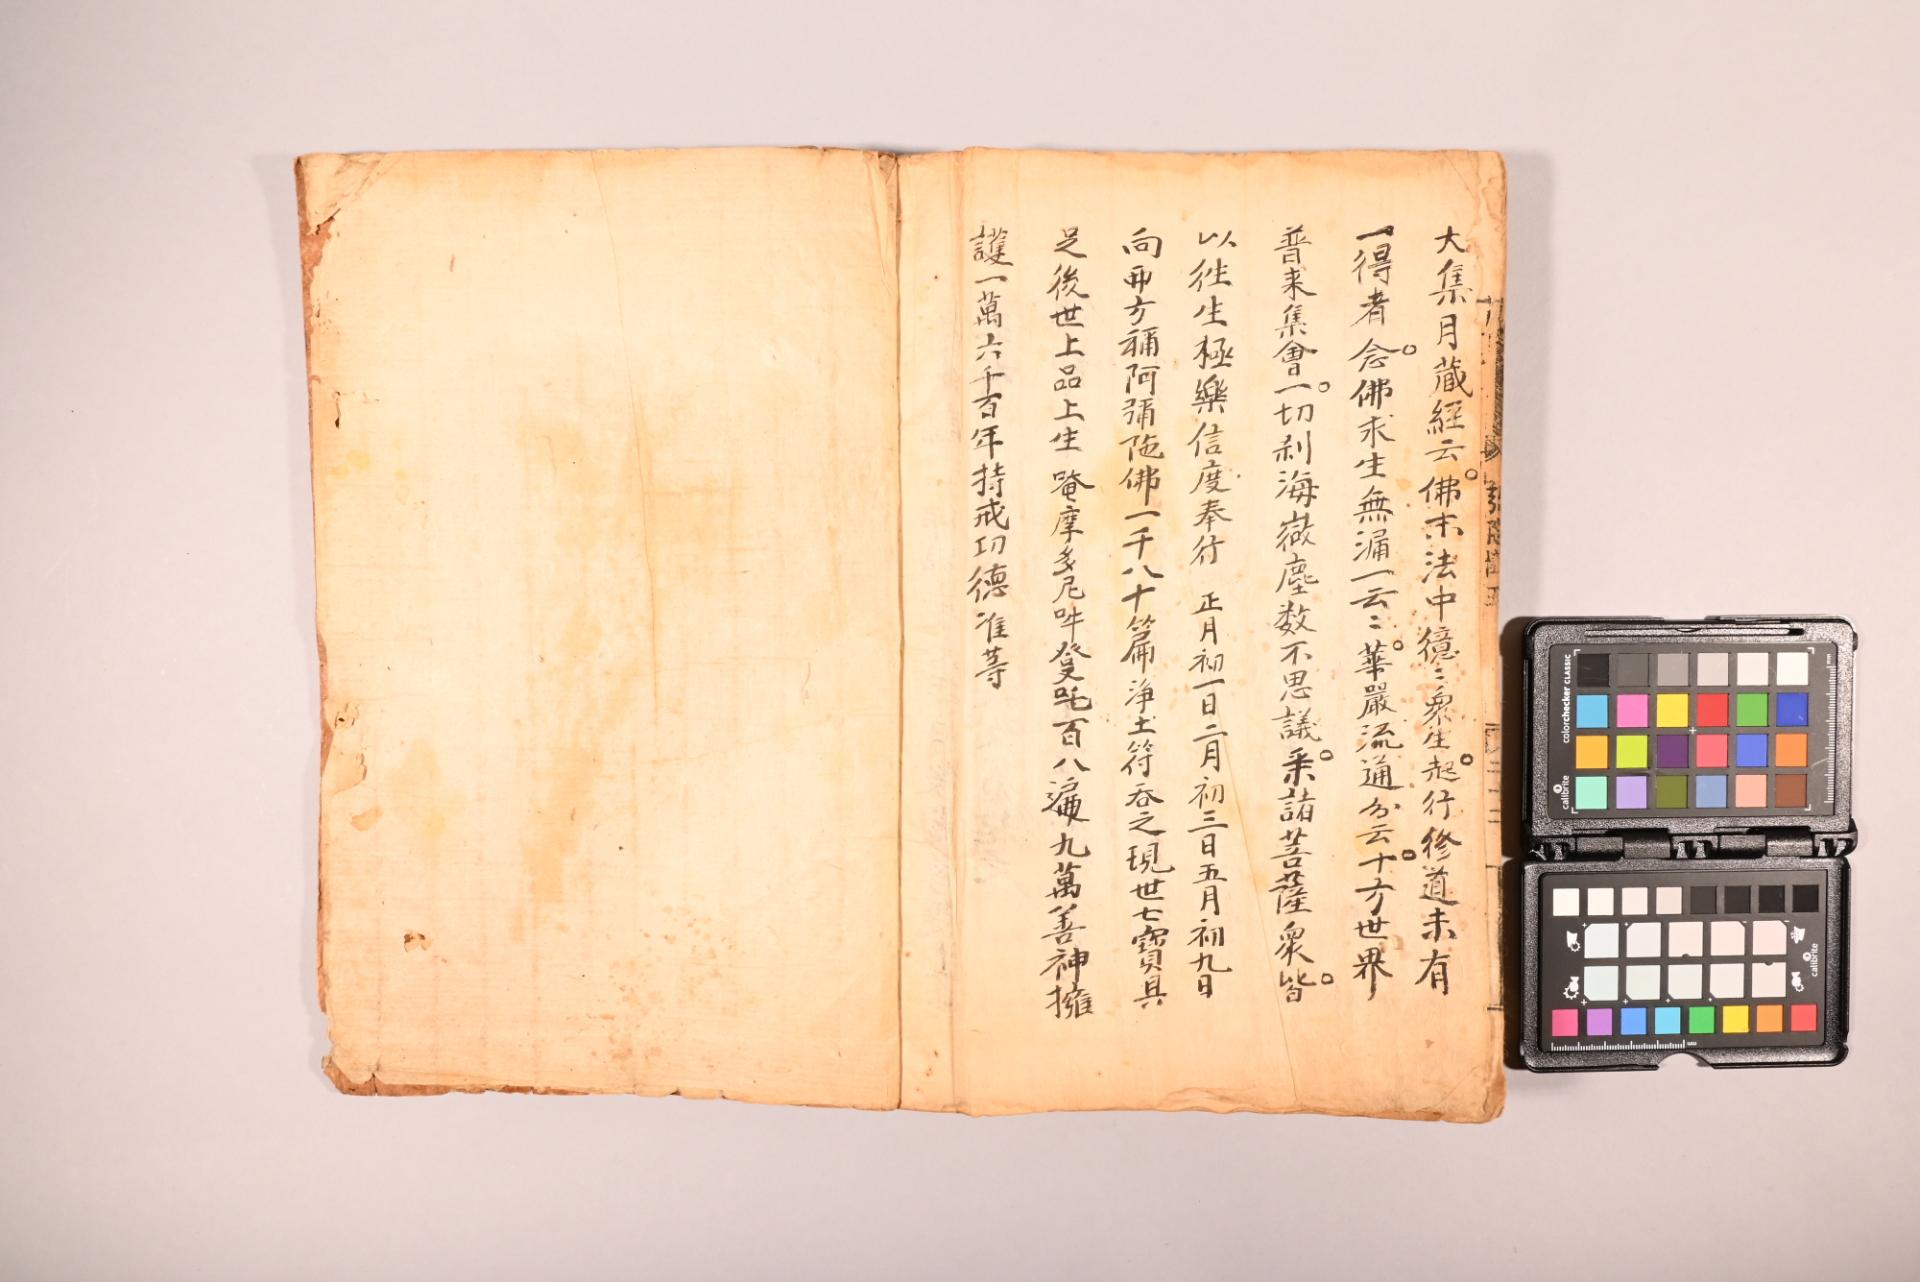 大集月蔵經云佛末法中億〻衆生起行修道未有
一得者念佛求生無漏一云〻華嚴流通分云十方世界
普来集會一切刹海微塵数不思議乘諸菩薩衆皆
以徃生極樂信度奉行 正月初一日二月初三日五月初九日
向西方稱阿彌陁佛一千八十篇淨土符吞之現世七寶具
足後世上品上生 唵摩多尼吽發吒百八遍九萬善神擁
護一萬六千百年持戒功德准等